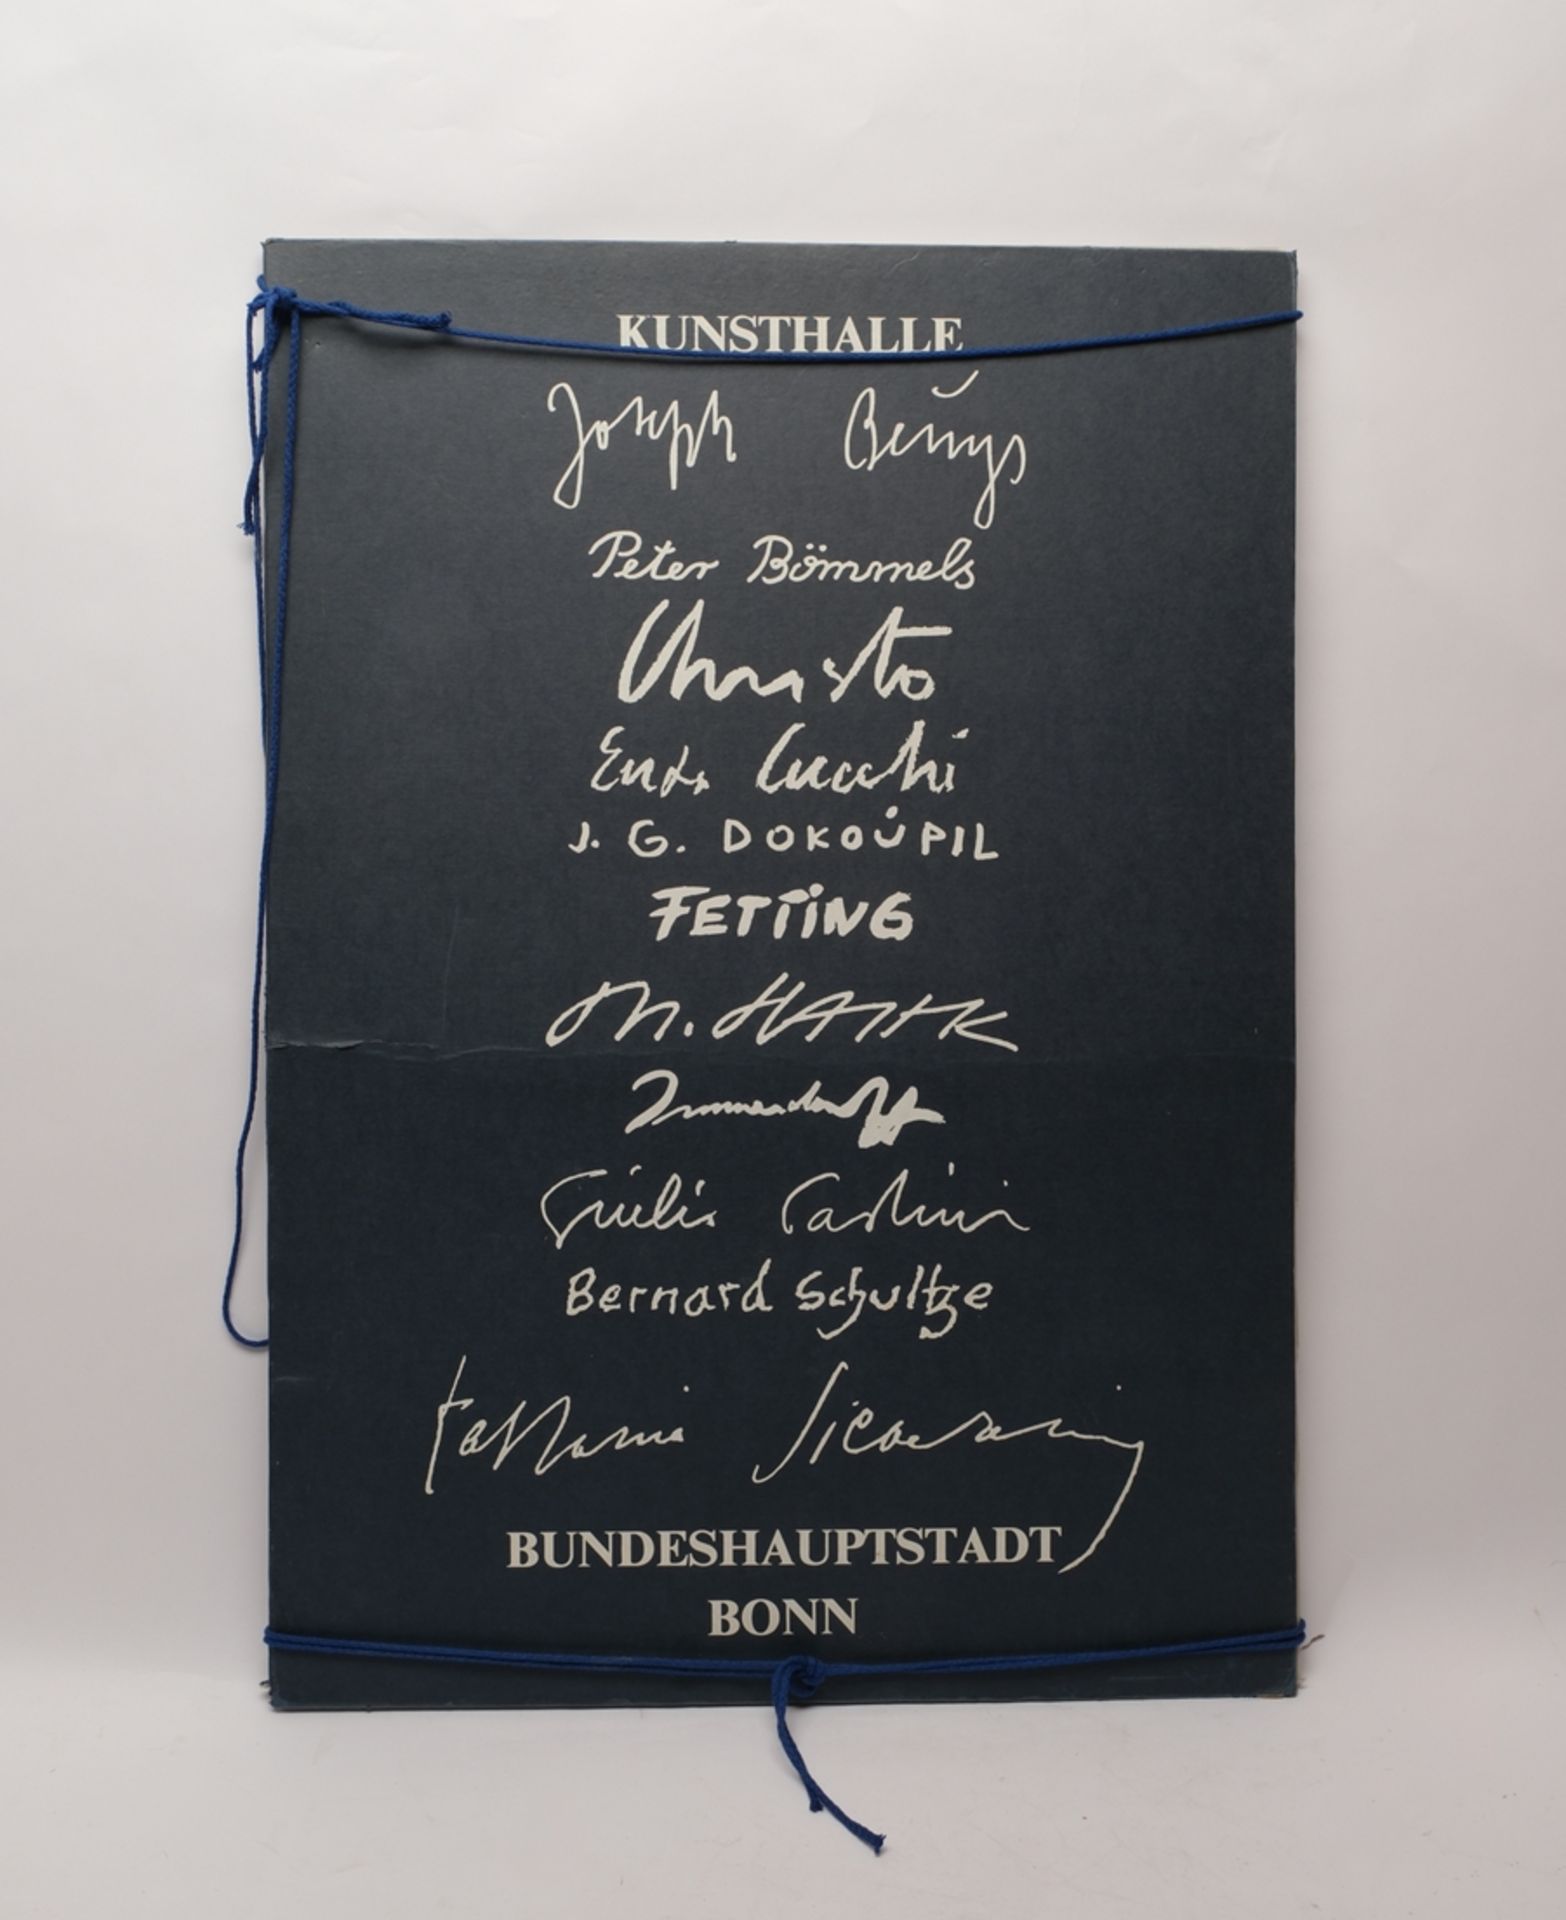 KUNSTHALLE
Joseph Beuys
Peter Bömmels
Christo
Enzo Cucchi
J. G. DOKOUPIL
FETTING
Immendorff
Giulio Paolini
Bernard Schultze
Katharina Sieverding
BUNDESHAUPTSTADT
BONN